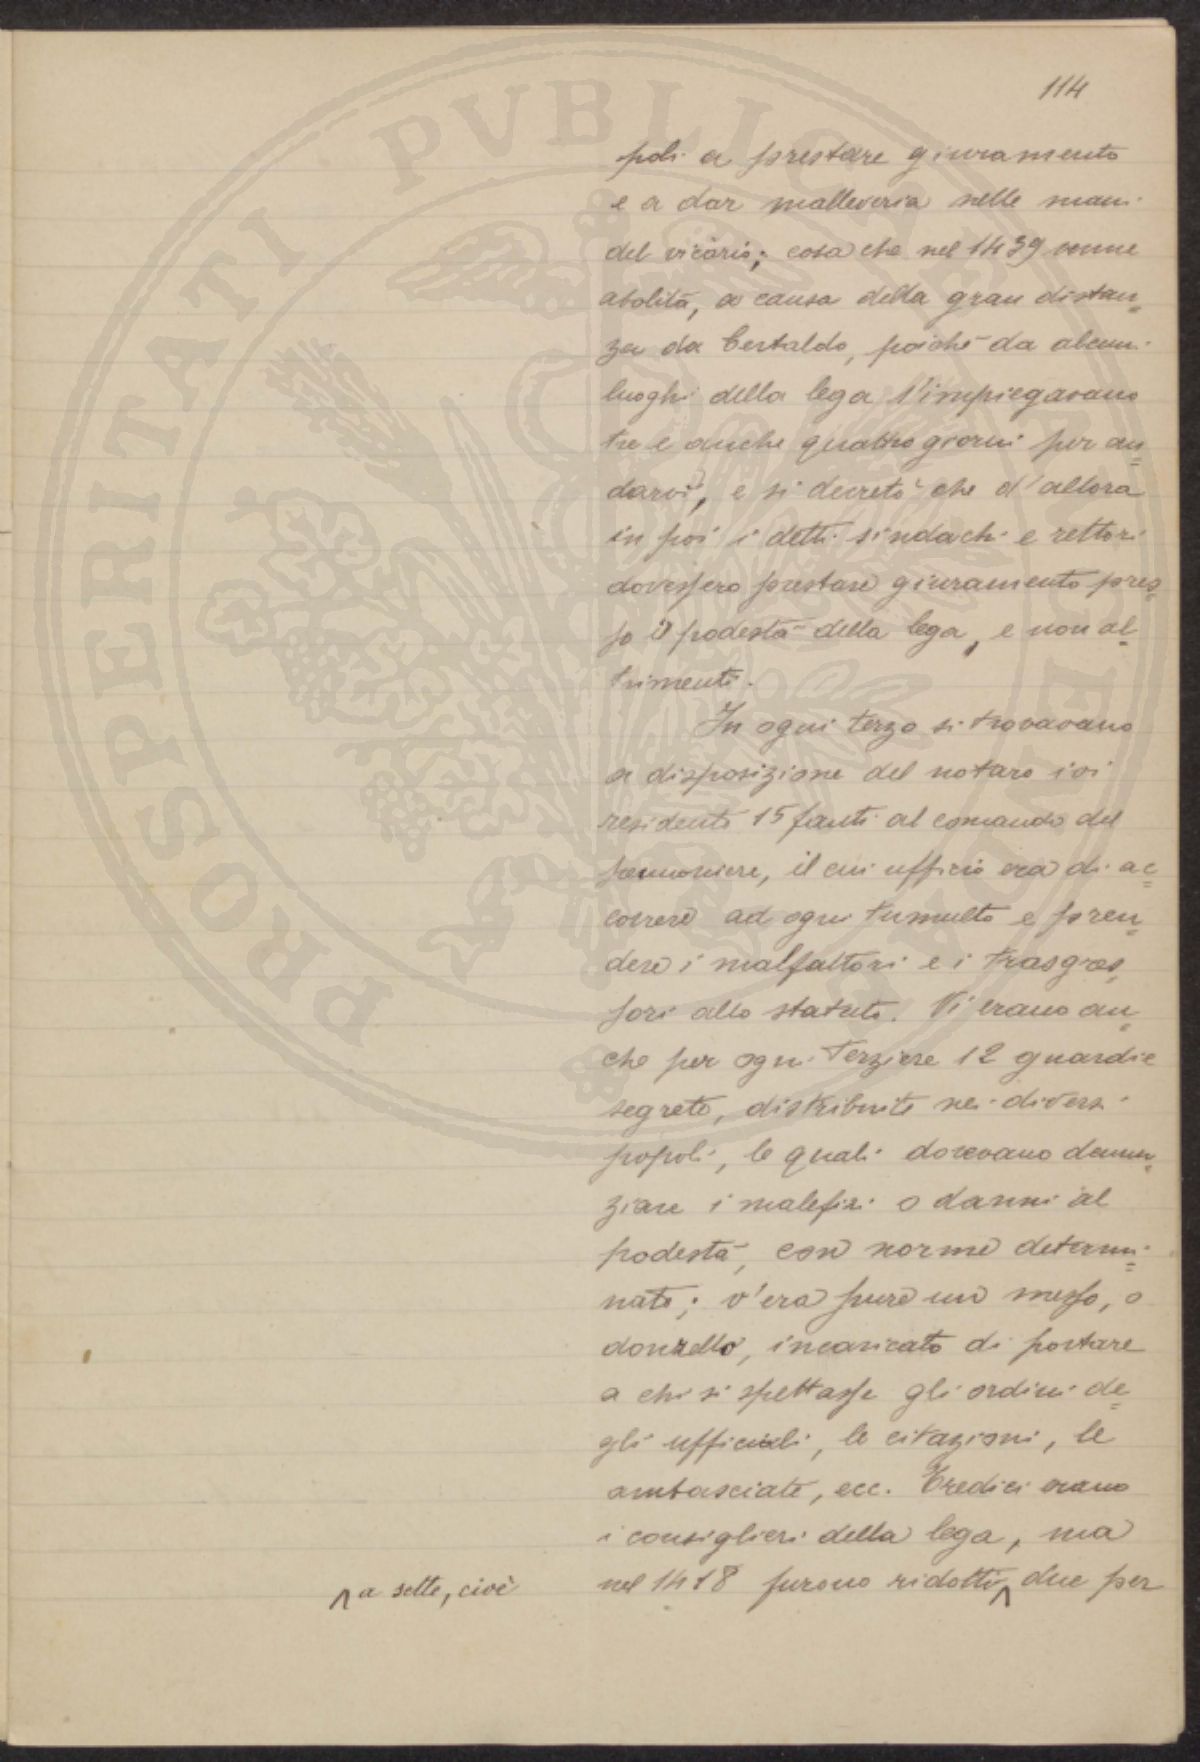 114
poli a prestare giuramento
e a dar malleveria nelle mani
del vicario; cosa che nel 1439 venne
abolita, a causa della gran distan=
za da Certaldo, poichè da alcuni
luoghi della lega s'impiegavano
tre e anche quattro giorni per an=
darvi, e si decretò che d'allora
in poi i detti sindachi e rettori
dovessero prestare giuramento pres=
so il podestà della lega, e non al=
trimenti.
In ogni terzo si trovavano
a disposizione del notaro ivi
residente 15 fanti al comando del
pennoniere, il cui ufficio era di ac=
correre ad ogni tumulto e pren=
dere i malfattori e i trasgres=
sori allo statuto. Vi erano an=
che per ogni Terziere 12 guardie
segrete, distribuite nei diversi
popoli, le quali dovevano denun=
ziare i malefizi o danni al
podestà, con norme determi=
nate; v'era pure un messo, o
donzello, incaricato di portare
a chi si spettasse gli ordini de=
gli ufficiali, le citazioni, le
ambasciate, ecc. Tredici erano
i consiglieri della lega, ma
nel 1418 furono ridotti ^ due per
^ a sette, cioè
PROSPERITATI PVBLICAE AVGENDAE